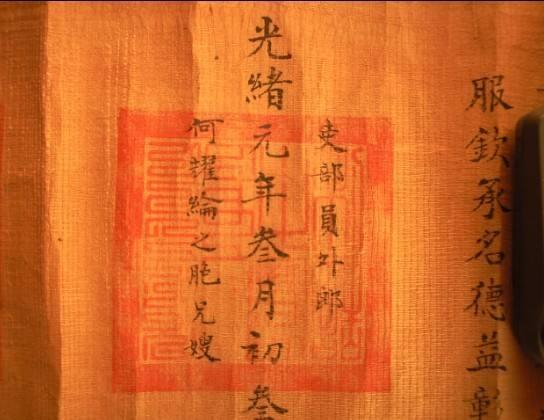 服欽承名德益彰
吏部員外郎
光緒元年叁月初叁
何耀綸之胞兄嫂